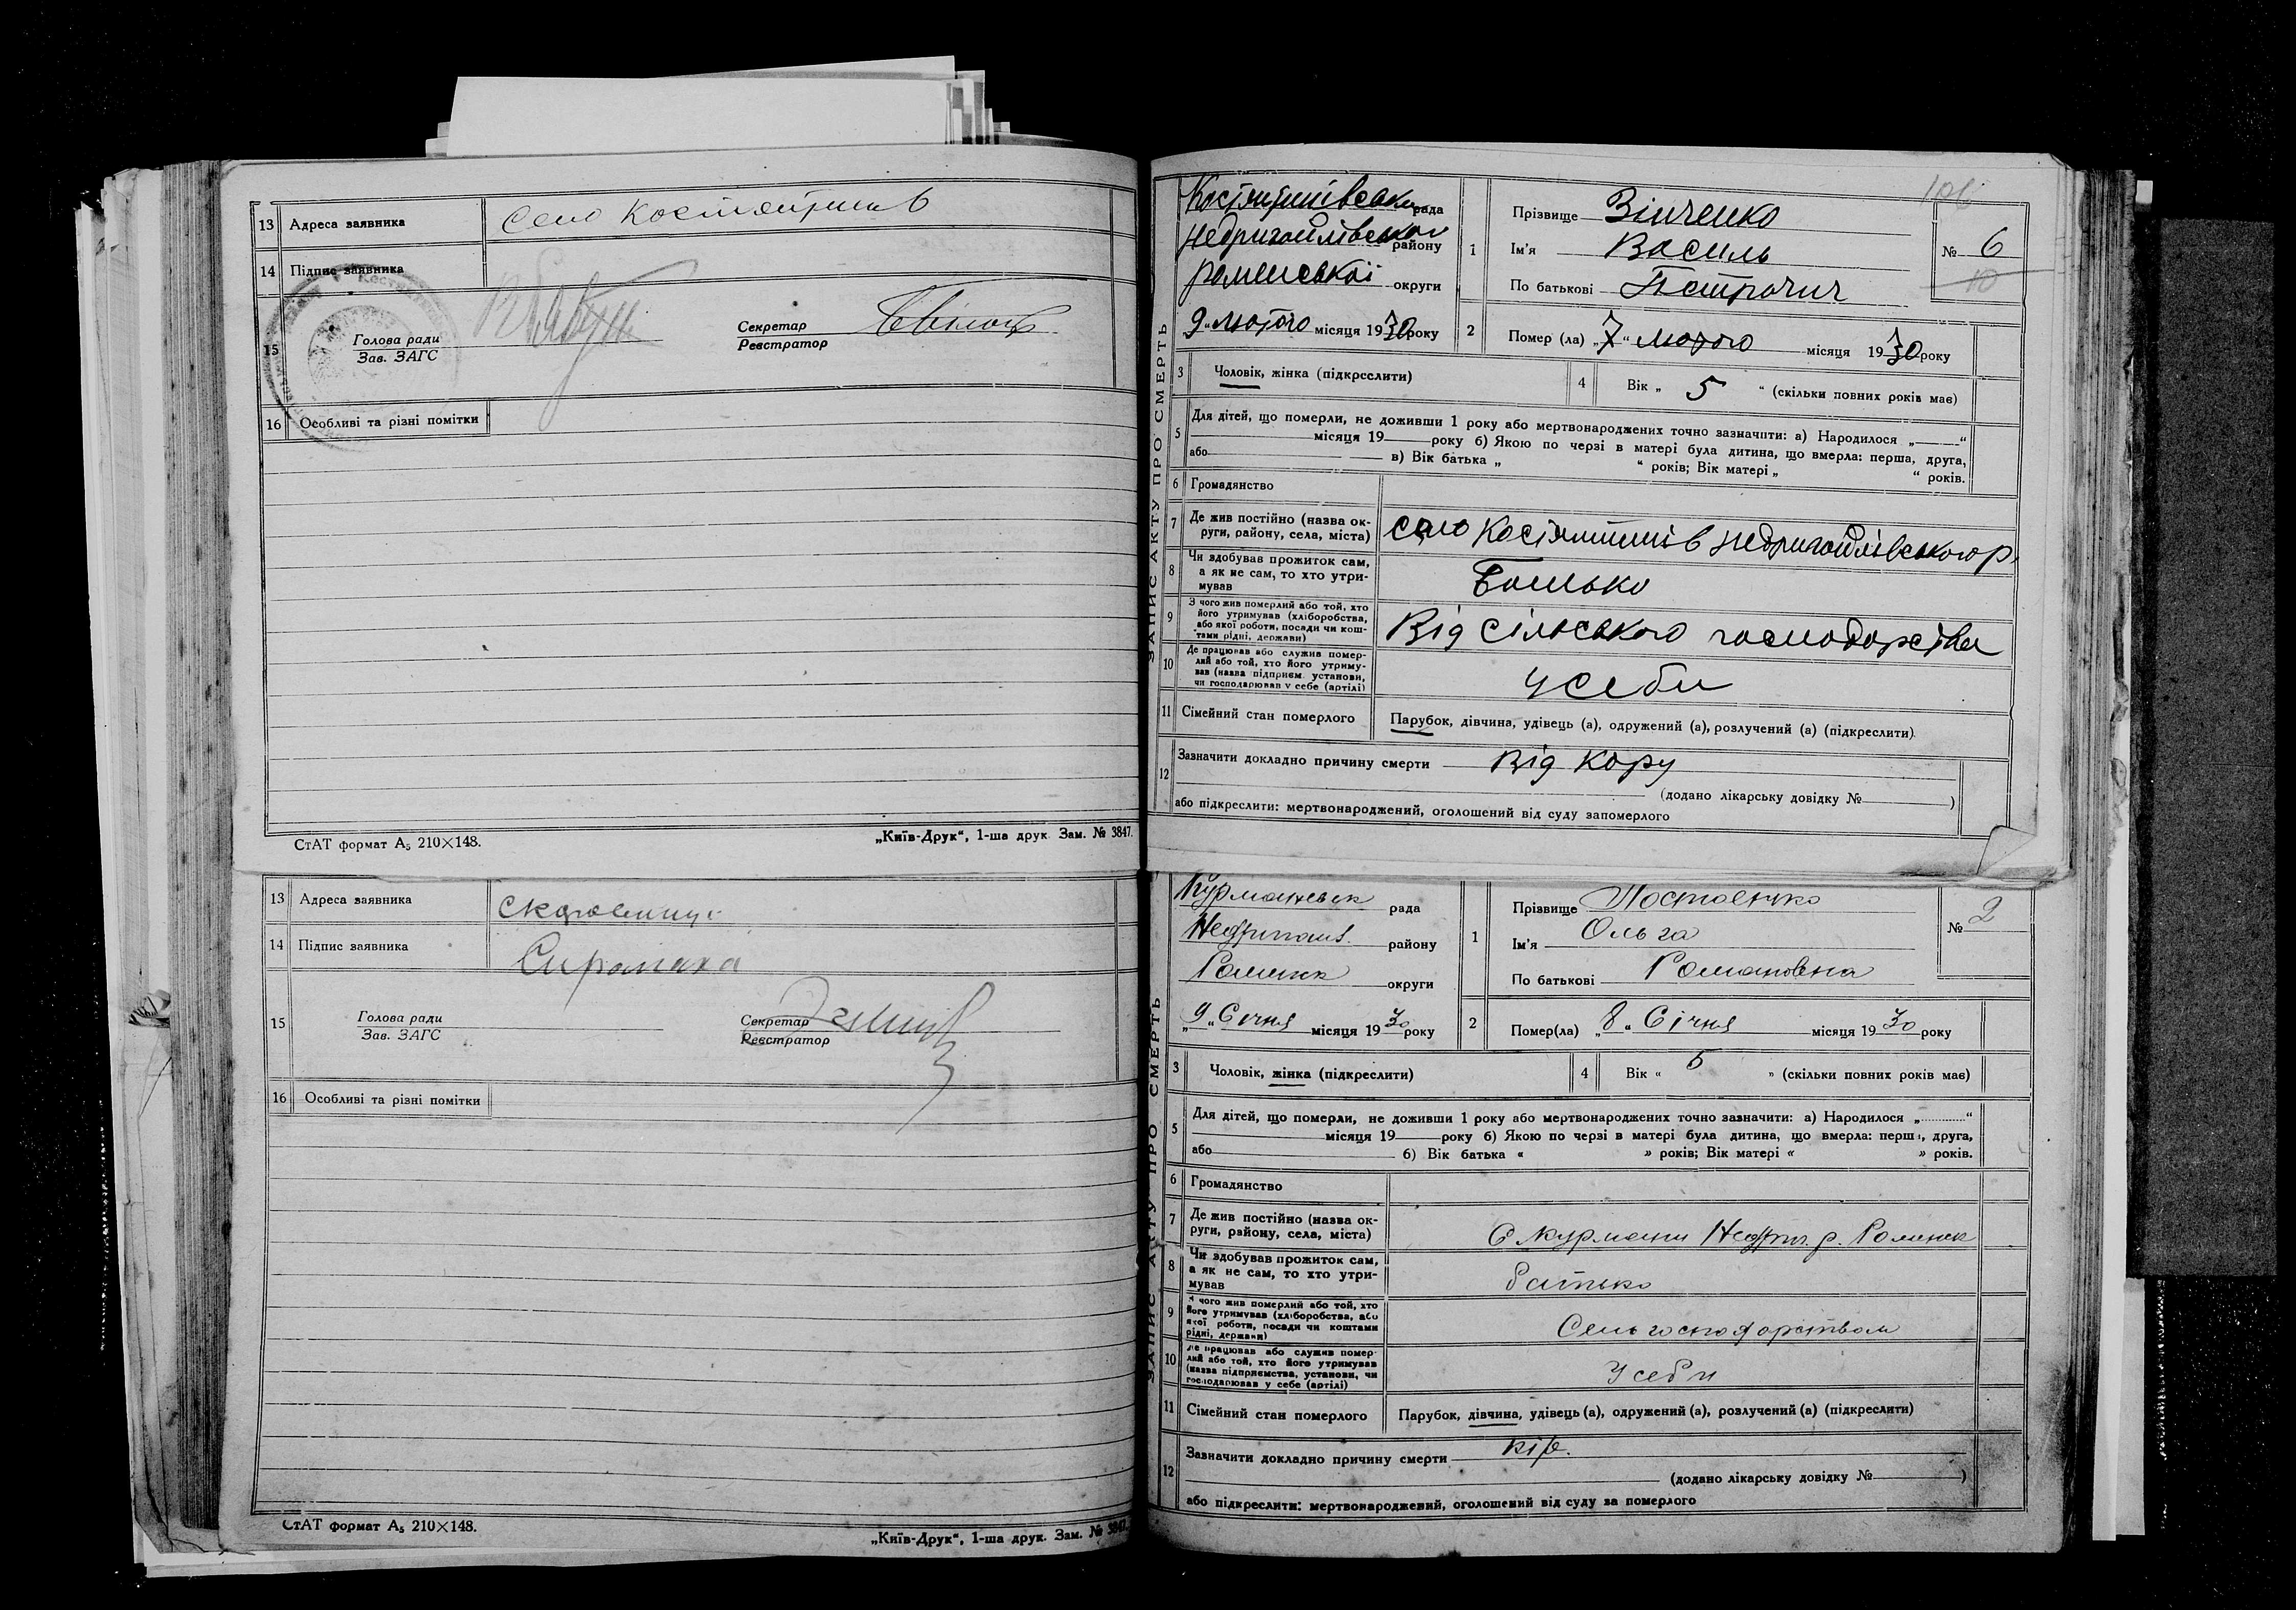 13 Адреса заявника село Костянтинів
14 Підпис заявника
15 Голова ради
Зав. ЗАГС
Секретар
Реєстратор
16 Особливі та різні помітки
СтАТ формат А5 210×148.
„Київ-Друк“, 1-ша друк. Зам. № 3847.
13 Адреса заявника
14 Підпис заявника
15 Голова ради
Зав. ЗАГС
Секретар
Реєстратор
16 Особливі та різні помітки
СтАТ формат А5 210×148.
„Київ-Друк“, 1-ша друк. Зам. № 3847.
ЗАПИС АКТУ ПРО СМЕРТЬ
рада
району
роменської округи
9 лютого місяця 1930 року
1 Прізвище Зінченко
Ім'я Василь
По батькові Петрович
№ 6
10
2 Помер (ла) „7“ лютого місяця 1930 року
3 Чоловік, жінка (підкреслити)
4 Вік „ 5 “ (скільки повних років має)
5 Для дітей, що померли, не доживши 1 року або мертвонароджених точно зазначити: а) Народилося „ “
місяця 19 року б) Якою по черзі в матері була дитина, що вмерла: перша, друга,
або в) Вік батька „ “ років; Вік матері „ “ років.
6 Громадянство
7 Де жив постійно (назва округи, району, села, міста) село
8 Чи здобував прожиток сам, а як не сам, то хто утримував Батько
9 З чого жив померлий або той, хто його утримував (хліборобства, або якої роботи, посади чи коштами рідні, держави) Від сільського господарства
10 Де працював або служив померлий або той, хто його утримував (назва підприєм. установи, чи господарював у себе (артілі) у себи
11 Сімейний стан померлого Парубок, дівчина, удівець (а), одружений (а), розлучений (а) (підкреслити).
12 Зазначити докладно причину смерти Від кору
(додано лікарську довідку № )
або підкреслити: мертвонароджений, оголошений від суду запомерлого
ЗАПИС АКТУ ПРО СМЕРТЬ
рада
району
округи
„9„ Січня місяця 1930 року
1 Прізвище
Ім'я Ольга
По батькові Романовна
№ 2
2 Помер(ла) „8„ Січня місяця 1930 року
3 Чоловік, жінка (підкреслити)
4 Вік « 5 » (скільки повних років має)
5 Для дітей, що померли, не доживши 1 року або мертвонароджених точно зазначити: а) Народилося „ “
місяця 19 року б) Якою по черзі в матері була дитина, що вмерла: перша, друга,
або б) Вік батька « » років; Вік матері « » років.
6 Громадянство
7 Де жив постійно (назва округи, району, села, міста)
8 Чи здобував прожиток сам, а як не сам, то хто утримував батько
9 З чого жив померлий або той, хто його утримував (хліборобства, або якої роботи, посади чи коштами рідні, держави) Сельгосподарством
10 Де працював або служив померлий або той, хто його утримував (назва підприємства, установи, чи господарював у себе (артілі) У себи
11 Сімейний стан померлого Парубок, дівчина, удівець (а), одружений (а), розлучений (а) (підкреслити)
12 Зазначити докладно причину смерти кір.
(додано лікарську довідку № )
або підкреслити: мертвонароджений, оголошений від суду за померлого